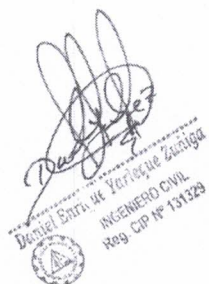 Daniel Enrique Yarleque Zuñiga
INGENIERO CIVIL
Reg. CIP Nº 131329